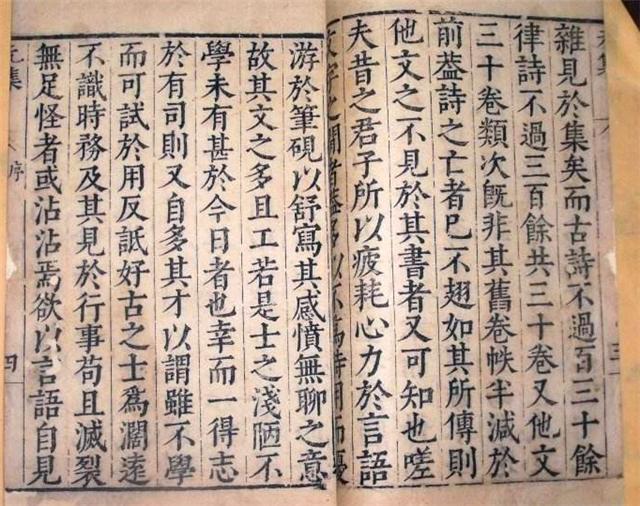 雜見於集矣而古詩不過百三十餘
律詩不過三百餘共三十卷又他文
三十卷類次旣非其舊卷帙半減於
前葢詩之亡者巳不翅如其所傳則
他文之不見於其書者又可知也嗟
夫昔之君子所以疲耗心力於言語
文字之間者葢多以不爲時用而憂
游於筆硯以舒寫其感憤無聊之意
故其文之多且工若是士之淺陋不
學未有甚於今日者也幸而一得志
於有司則又自多其才以謂雖不學
而可試於用反詆好古之士爲濶遠
不識時務及其見於行事苟且滅裂
無足怪者或沾沾焉欲以言語自見
元集 序 四